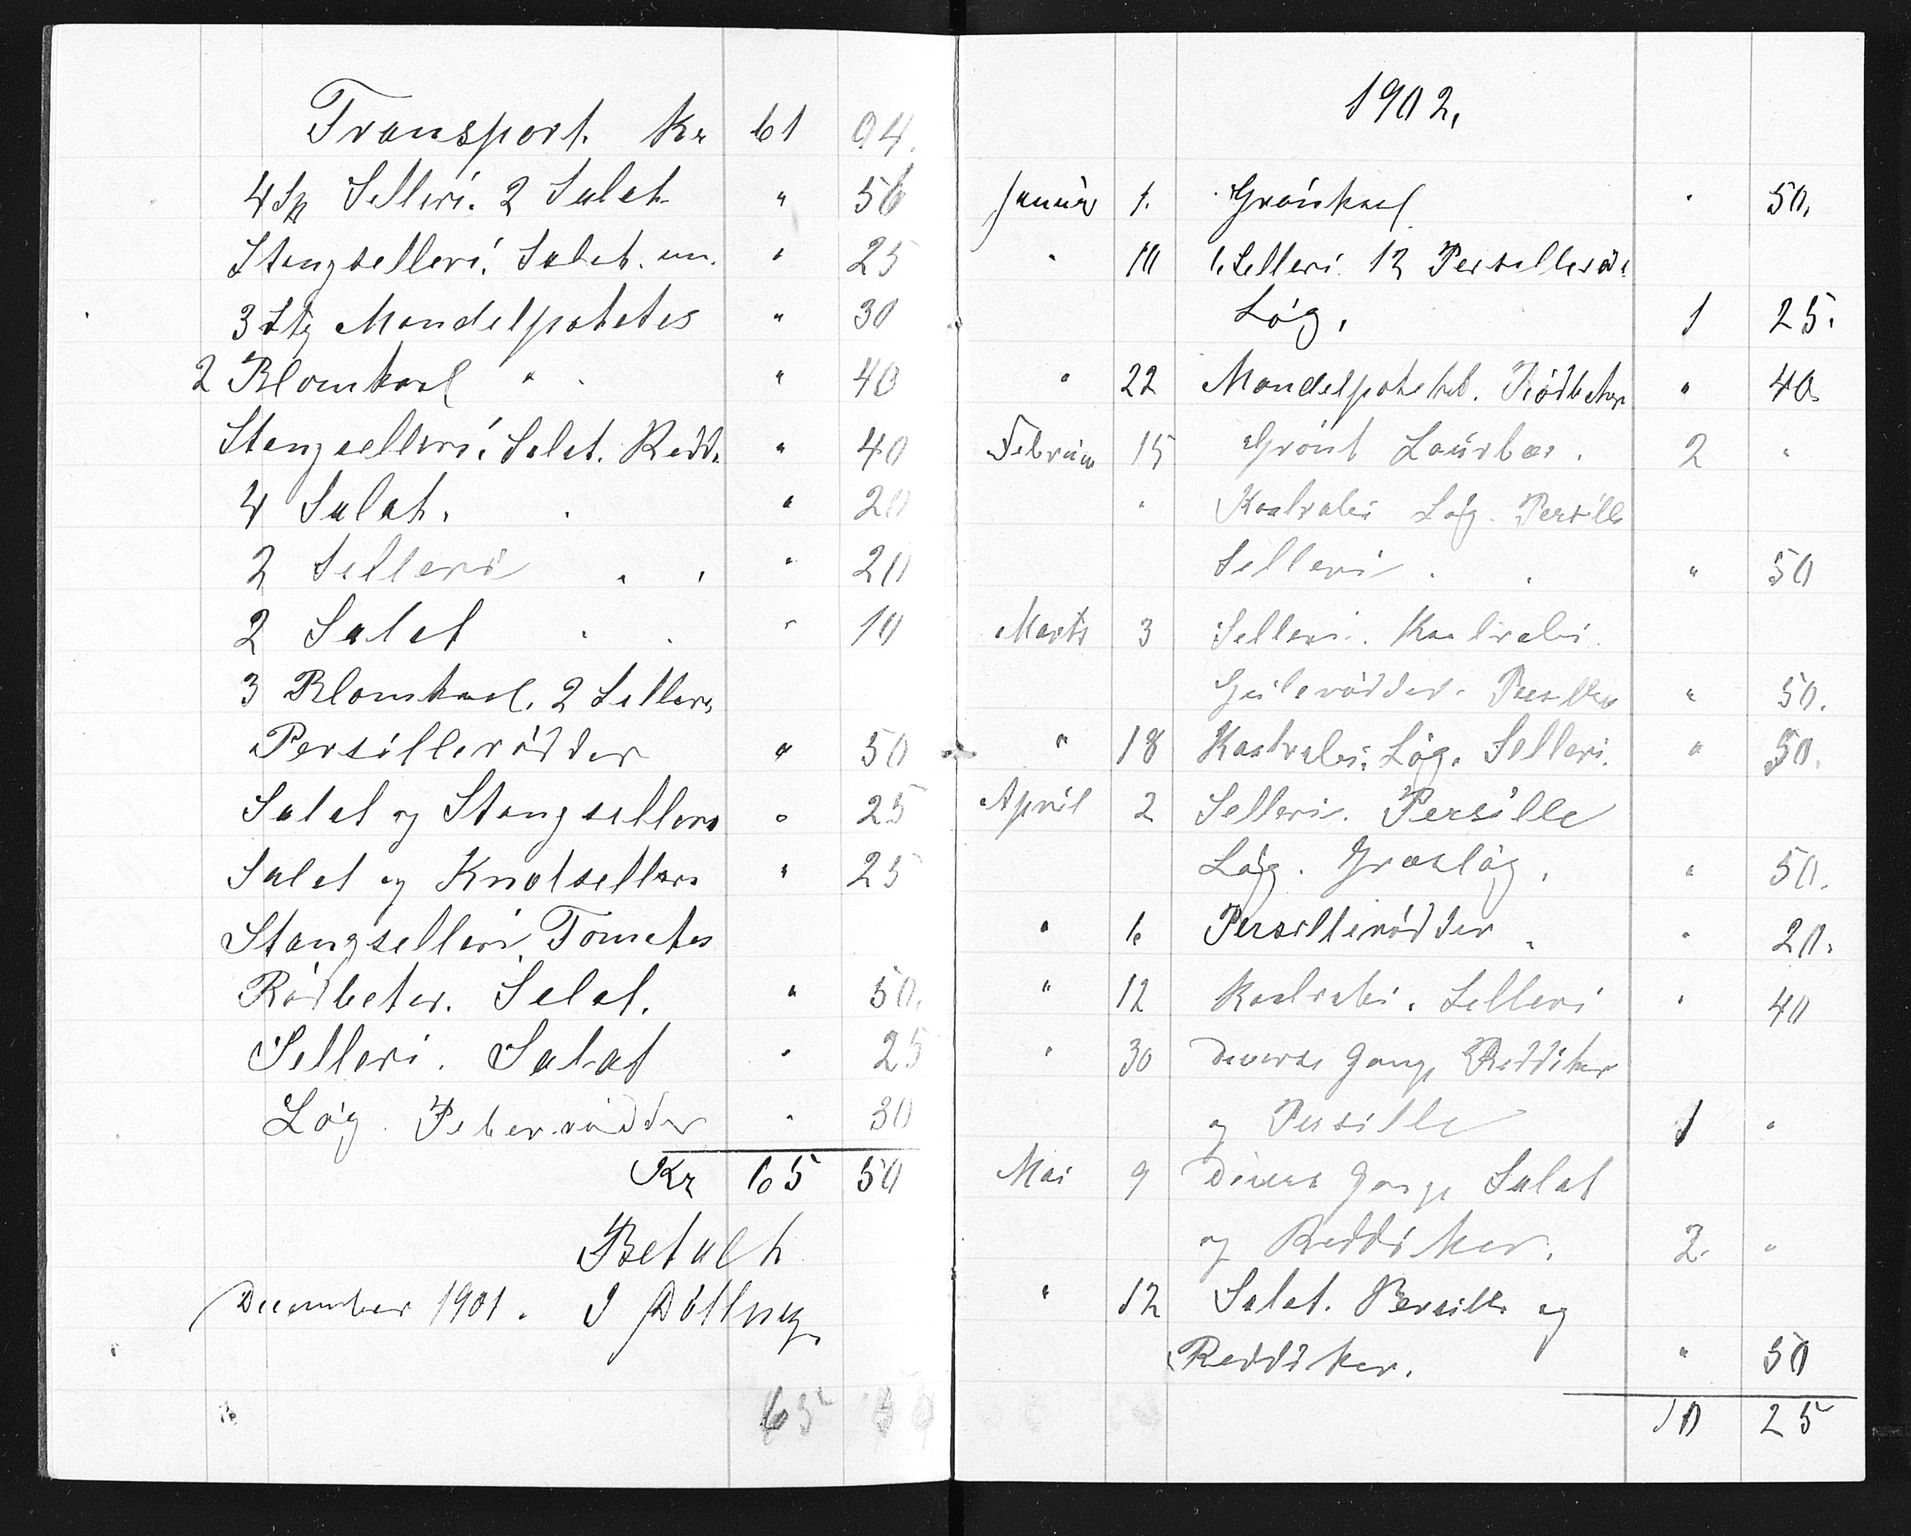 Transport. Kr 61 04.
4 Sp Selleri. 2 Salat " 56
Stangselleri. Salat. " 25
3 Mandelpotetes " 30
2 Blomkaal " . " 40
Stangselleri. Salat. Redd. " 40
4 Salat. . " 20
2 Selleri . . " 20
2 Salat . . " 10
3 Blomkaal. 2 Selleri
Persillerødder " 50
Salat og Stangselleri " 25
Salat og Knolselleri " 25
Stangselleri Tomates
Rødbeter. Salat. " 50.
Selleri. Salat " 25
Løg. Peberrødder " 30
Kr 65 50
Betalt
December 1901. J
65 50
1902.
Januar 1. Grønkaal " 50.
" 10 6 Selleri 12 Persillerød.
Løg. 1 25.
" 22 Mandelpotetet. Rødbeter " 40.
Februar 15 Grønt Laurbær. 2 "
" Kaalrabi Løg. Persille
Selleri . . " 50
Marts 3 Selleri. Kaalrabi.
Gulerødder. Persille " 50.
" 18 Kaalrabi. Løg. Selleri. " 50.
April 2 Selleri. Persille
Løg. Græsløg. " 50.
" 6 Persillerødder . " 20.
" 12 Kaalrabi. Selleri " 40
" 30 Diverse Gange Reddiker
og Persille 1 "
Mai 9 Diverse Gange Salat
og Reddiker. 2. "
" 12 Salat. Persille og
Reddiker. " 50
10 25